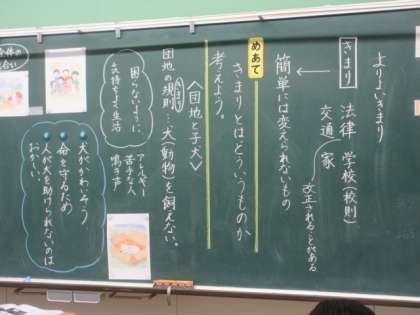 よりよいきまり
きまり 法律 学校(校則)
交通 家
改正されることがある
簡単には変えられないもの
めあて
きまりとはどういうものか
考えよう。
〈団地と子犬〉
きまり
団地の規則…犬(動物)を飼えない。
アレルギー
苦手な人
鳴き声
困らないように
気持ちよく生活
犬がかわいそう
命を守るため
人が犬を助けられないのは
おかしい。